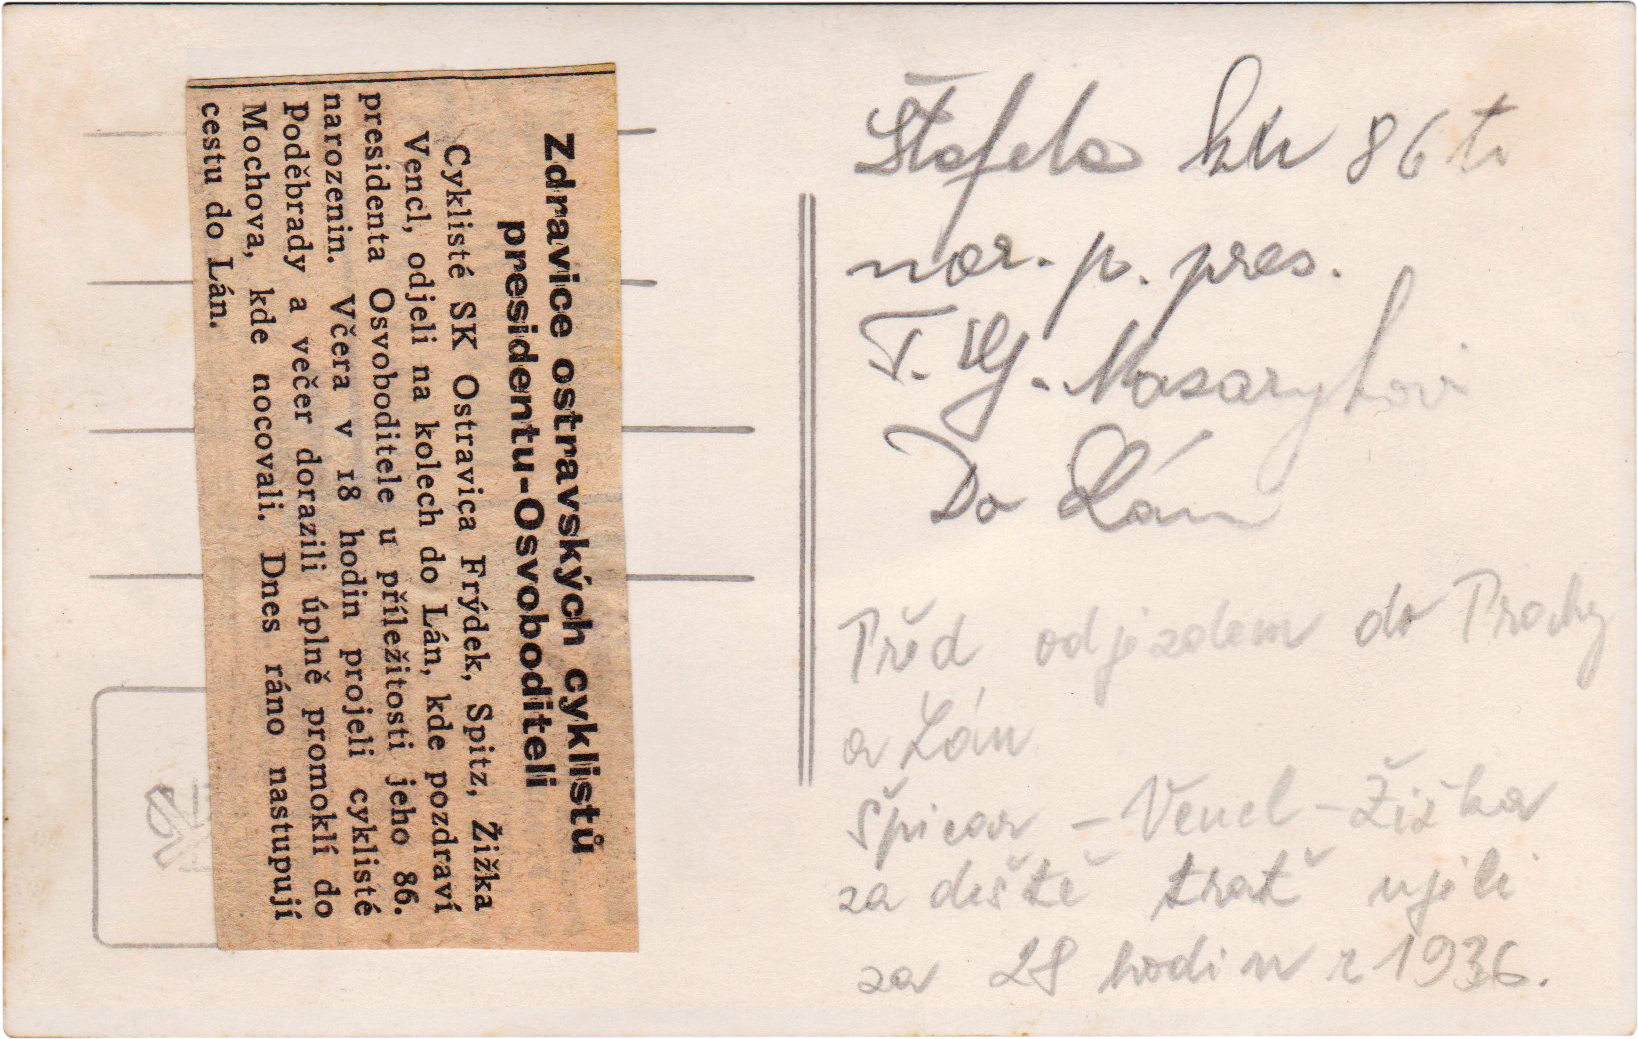 Zdravice ostravských cyklistů
presidentu-Osvoboditeli
Cyklisté SK Ostravica Frýdek, Spitz, Žižka
Vencl, odjeli na kolech do Lán, kde pozdraví
presidenta Osvoboditele u příležitosti jeho 86.
narozenin. Včera v 18 hodin projeli cyklisté
Poděbrady a večer dorazili úplně promoklí do
Mochova, kde nocovali. Dnes ráno nastupují
cestu do Lán.
Štafeta 86 ti
nar. p. pres.
T. G. Masarykovi
Do Lán
Před odjezdem do Prahy
a Lán
Špicar – Vencl – Žižka
za deště trať ujeli
za 28 hodin r 1936.